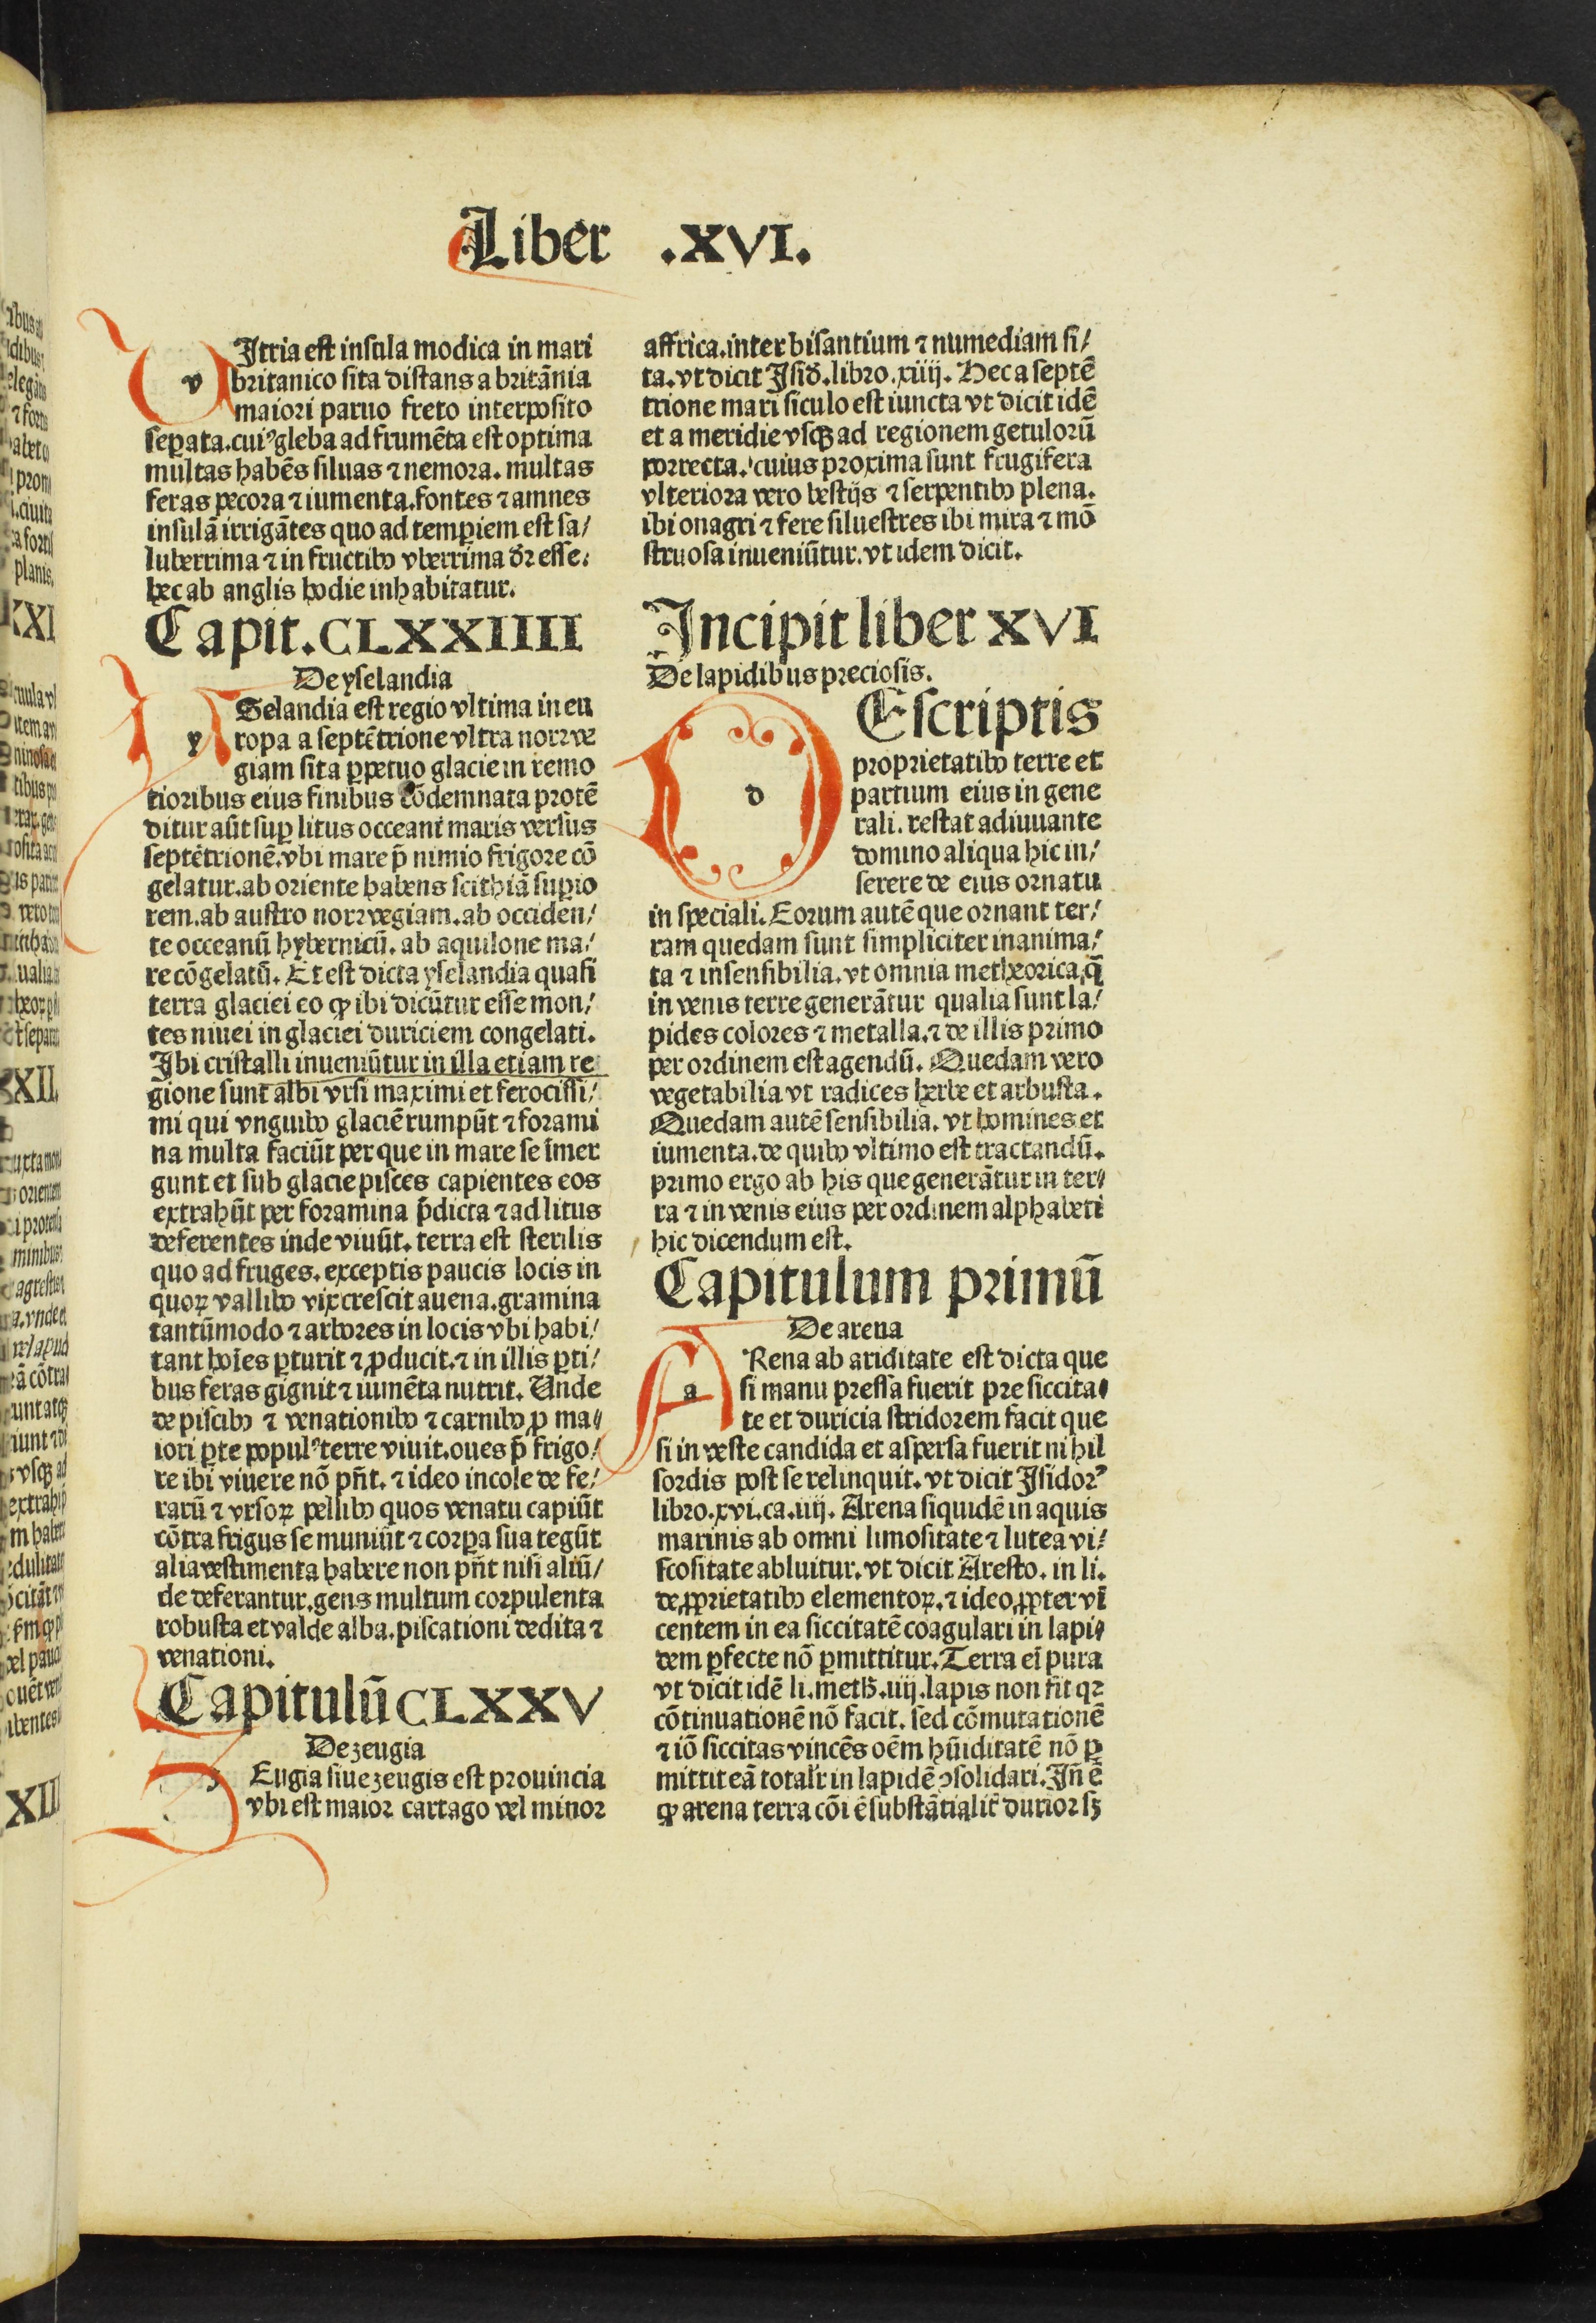 Liber .XVI.
vJtria est insula modica in mari
britanico sita distans a britãnia
maiori paruo freto interposito
seꝑata.cuiꝰ gleba ad frumẽta est optima
multas habẽs siluas ⁊ nemora. multas
feras pecora ⁊ iumenta.fontes ⁊ amnes
insulã irrigãtes quo ad temꝑiem est sa/
luberrima ⁊ in fructibꝫ vberrima dr̃ esse.
hec ab anglis hodie inhabitatur.
Capit.CLXXIIII
De yselandia
ySelandia est regio vltima in eu
ropa a septẽtrione vltra norrwe
giam sita ꝑpetuo glacie in remo
tioribus eius finibus cõdemnata protẽ
ditur aũt suꝑ litus occeani maris versus
septẽtrionẽ.vbi mare p̃ nimio frigore cõ
gelatur.ab oriente habens scithiã suꝑio
rem.ab austro norrwegiam.ab occiden/
te occeanũ hybernicũ. ab aquilone ma/
re cõgelatũ. Et est dicta yselandia quasi
terra glaciei eo ꝙ ibi dicũtur esse mon/
tes niuei in glaciei duriciem congelati.
Jbi cristalli inueniũtur in illa etiam re
gione sunt albi vrsi maximi et ferocissi/
mi qui vnguibꝫ glaciẽ rumpũt ⁊ forami
na multa faciũt per que in mare se ĩmer
gunt et sub glacie pisces capientes eos
extrahũt per foramina p̃dicta ⁊ ad litus
deferentes inde viuũt. terra est sterilis
quo ad fruges. exceptis paucis locis in
quoꝝ vallibꝫ vix crescit auena.gramina
tantũmodo ⁊ arbores in locis vbi habi/
tant hoĩes ꝑturit ⁊ ꝓducit.⁊ in illis ꝑti/
bus feras gignit ⁊ iumẽta nutrit. Unde
de piscibꝫ ⁊ venationibꝫ ⁊ carnibꝫ ꝓ ma/
iori ꝑte populꝰ terre viuit.oues p̃ frigo/
re ibi viuere nõ pñt. ⁊ ideo incole de fe/
rarũ ⁊ vrsoꝝ pellibꝫ quos venatu capiũt
cõtra frigus se muniũt ⁊ corꝑa sua tegũt
alia vestimenta habere non pñt nisi aliũ/
de deferantur.gens multum corpulenta
robusta et valde alba.piscationi dedita ⁊
venationi.
Capitulũ CLXXV
De zeugia
zEugia siue zeugis est prouincia
vbi est maior cartago vel minor
affrica.inter bisantium ⁊ numediam si/
ta.vt dicit Jsid̃.libro.xiiij. Hec a septẽ
trione mari siculo est iuncta vt dicit idẽ
et a meridie vsqꝫ ad regionem getulorũ
porrecta.cuius proxima sunt frugifera
vlteriora vero bestijs ⁊ serpentibꝫ plena.
ibi onagri ⁊ fere siluestres ibi mira ⁊ mõ
struosa inueniũtur. vt idem dicit.
Jncipit liber XVI
De lapidibus preciosis.
dEscriptis
proprietatibꝫ terre et
partium eius in gene
rali. restat adiuuante
domino aliqua hic in/
serere de eius ornatu
in speciali. Eorum autẽ que ornant ter/
ram quedam sunt simpliciter inanima/
ta ⁊ insensibilia.vt omnia metheorica,q̃
in venis terre generãtur qualia sunt la/
pides colores ⁊ metalla.⁊ de illis primo
per ordinem est agendũ. Quedam vero
vegetabilia vt radices herbe et arbusta.
Quedam autẽ sensibilia. vt homines et
iumenta.de quibꝫ vltimo est tractandũ.
primo ergo ab his que generãtur in ter/
ra ⁊ in venis eius per ordinem alphabeti
hic dicendum est.
Capitulum primũ
De arena
aRena ab ariditate est dicta que
si manu pressa fuerit pre siccita/
te et duricia stridorem facit que
si in veste candida et aspersa fuerit nihil
sordis post se relinquit. vt dicit Jsidorꝰ
libro.xvi.ca.iiij. Arena siquidẽ in aquis
marinis ab omni limositate ⁊ lutea vi/
scositate abluitur. vt dicit Aresto. in li.
de ꝓprietatibꝫ elementoꝝ.⁊ ideo ꝓpter vĩ
centem in ea siccitatẽ coagulari in lapi/
dem ꝑfecte nõ ꝑmittitur.Terra eĩ pura
vt dicit idẽ li.meth̃.iiij.lapis non fit qꝛ
cõtinuationẽ nõ facit. sed cõmutationẽ
⁊ iõ siccitas vincẽs oẽm hũiditatẽ nõ ꝑ
mittit eã totalr̃ in lapidẽ ꝯsolidari.Jñ ẽ
ꝙ arena terra cõi ẽ substãtialit̃ durior sꝫ